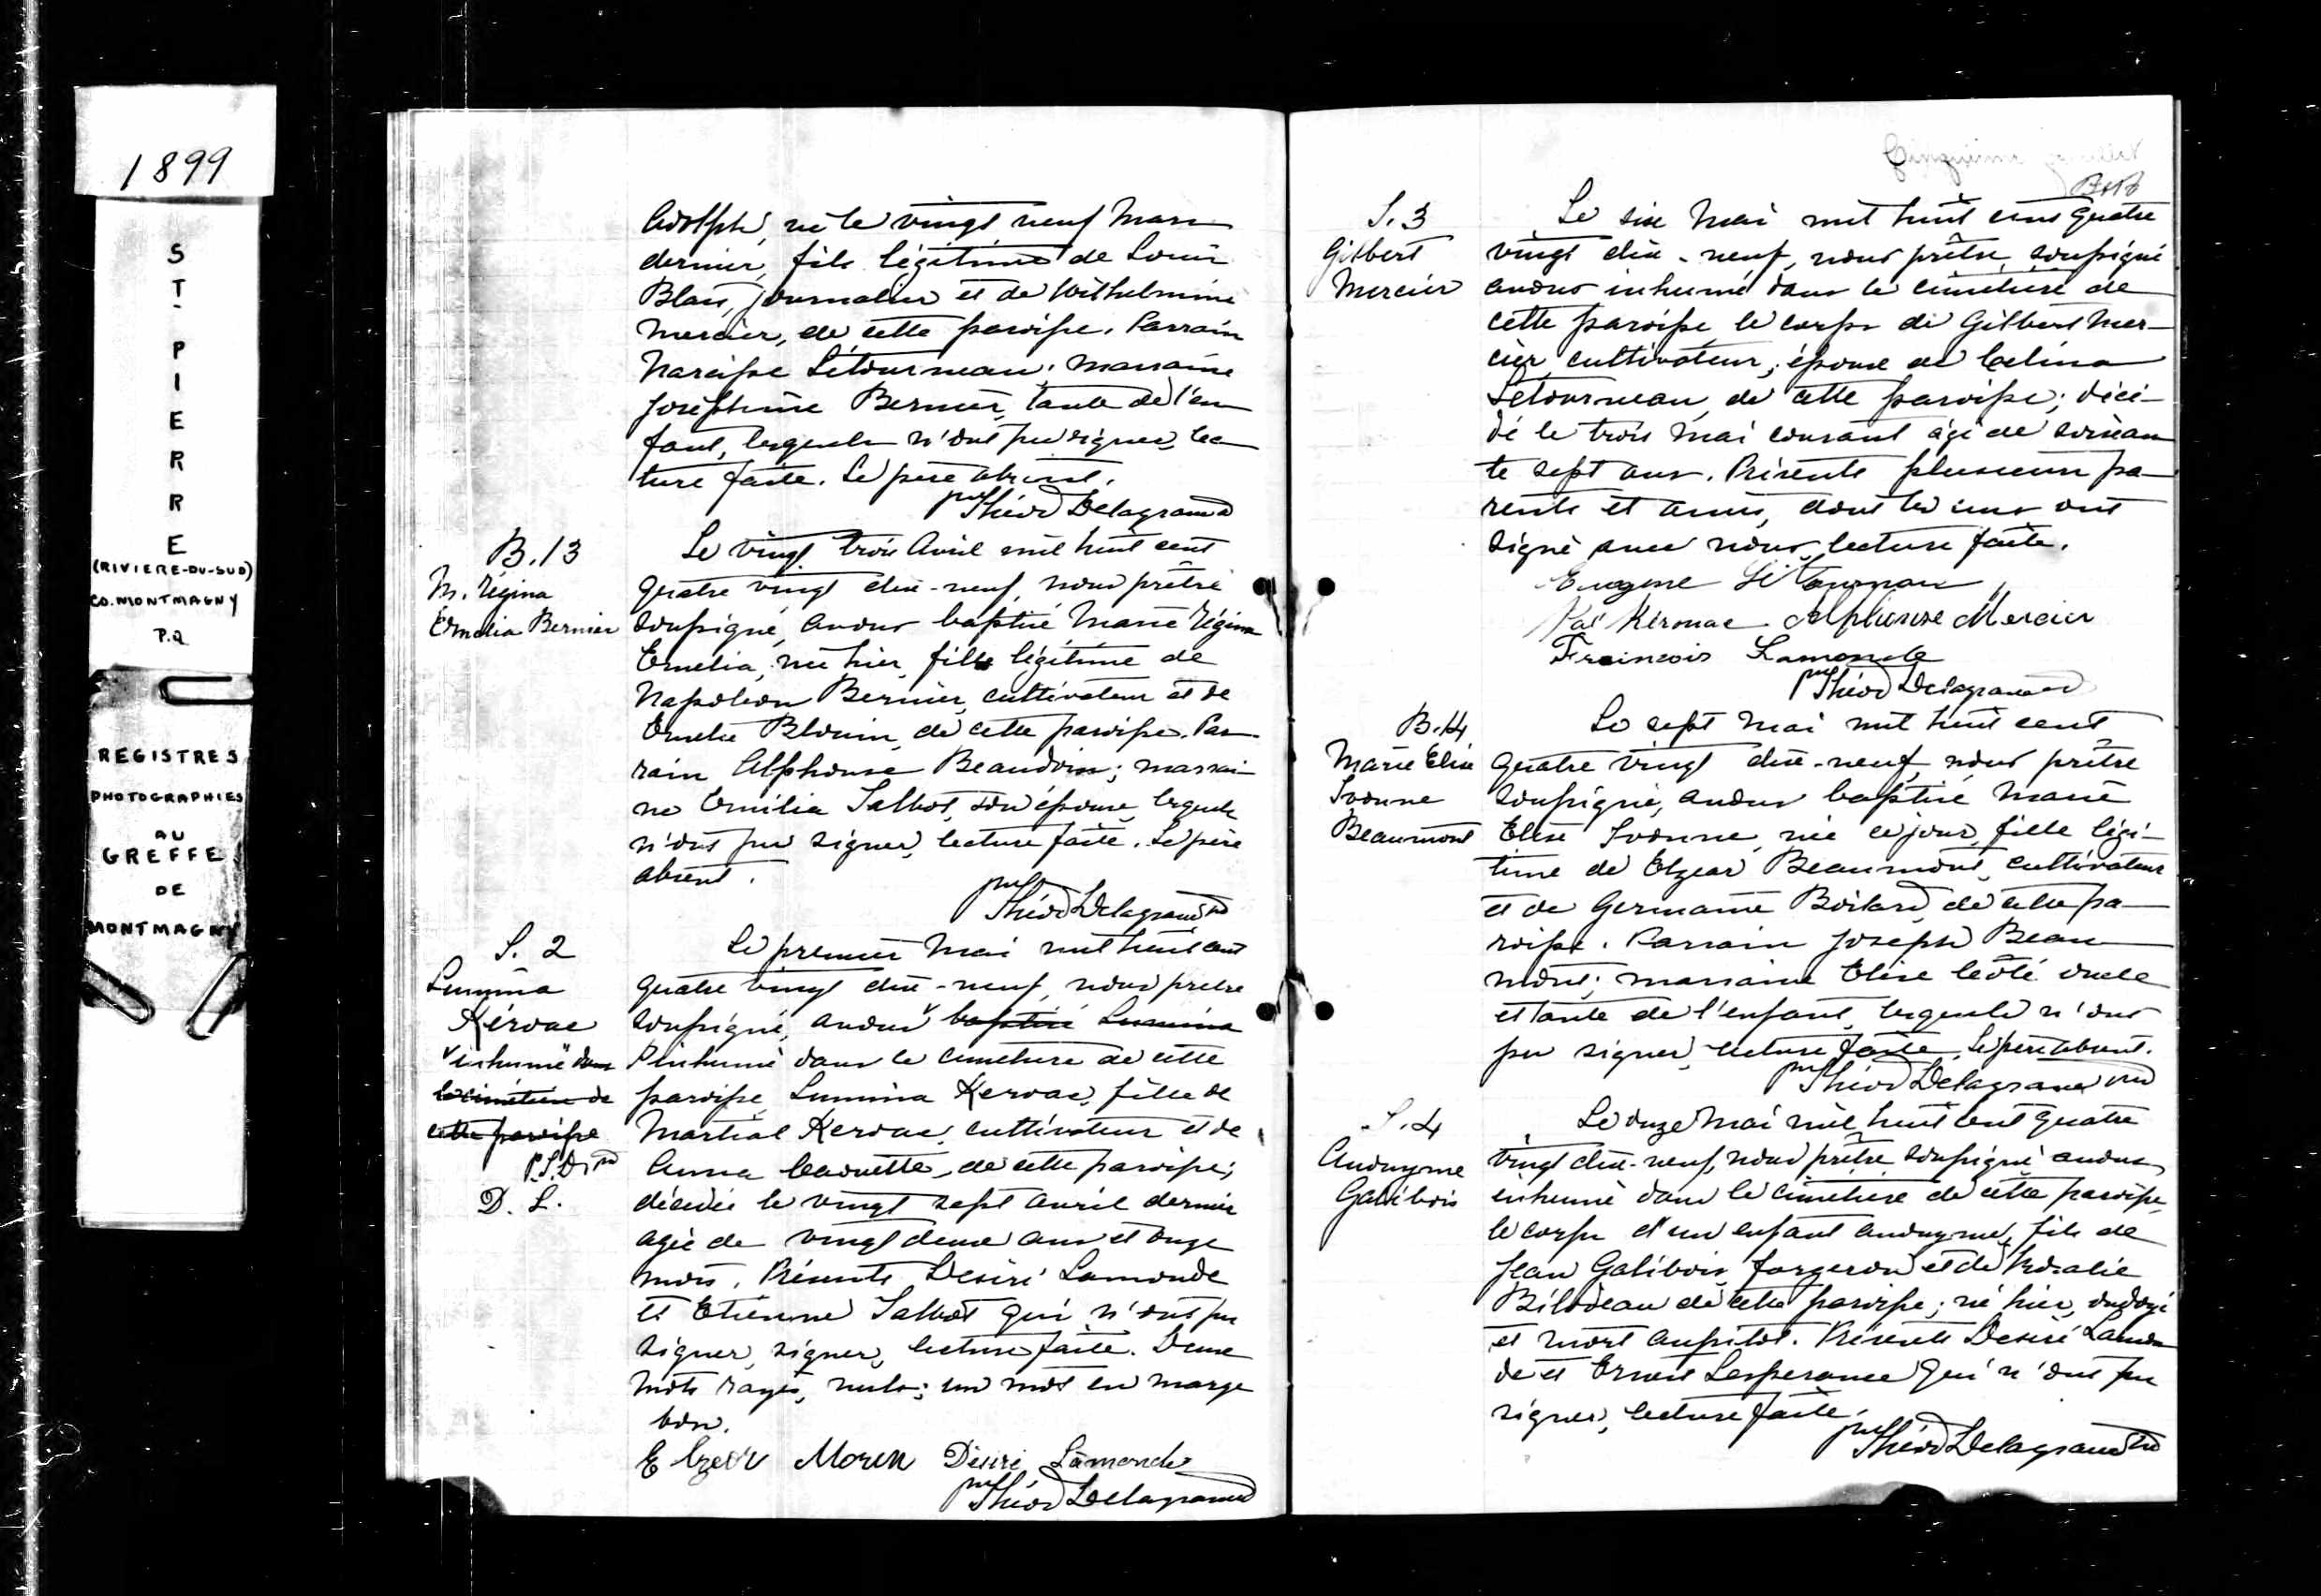 1899
S
T
P
I
E
R
R
E
(RIVIERE-DU-SUD)
CO. MONTMAGNY
P.Q
REGISTRES
PHOTOGRAPHIES
AU
GREFFE
DE
MONTMAGNY
Adolphe, né le vingt neuf Mars
dernier, fils légitime de Louis
Blais, journalier et de Wilhelmine
Mercier, de cette paroisse. Parrain
Narcisse Létourneau; marraine
Joséphine Bernier, tante de l'en
fant, lesquels n'ont pu signer, lec
ture faite. Le père absent.
Théod Delagrave
B.13
M. Régina
Emélia Bernier
Le vingt trois Avril mil huit cent
quatre vingt dix-neuf, nous prêtre
soussigné, avons baptisé Marie Régina
Emélia, née hier, fille légitime de
Napoléon Bernier, cultivateur et de
Emélie Blouin, de cette paroisse. Par-
rain Alphonse Beaudoin; marrai-
ne Emilia Talbot, son épouse, lesquels
n'ont pu signer, lecture faite. Le père
absent.
Théod Delagrave
S. 2
Lumina
Kéroac
"inhumé" dans
le cimétière de
cette paroisse
D. L.
Le premier Mai mil huit cent
quatre vingt dix-neuf, nous prêtre
soussigné, avons baptisé Lumina
inhumé dans le cimetière de cette
paroisse, Lumina Keroac, fille de
Martial Keroac, cultivateur et de
Anna Caouette, de cette paroisse;
décédée le vingt sept avril dernier
agée de vingt deux ans et onze
mois. Présents Desiré Lamonde
et Etienne Talbot qui n'ont pu
signer, signer, lecture faite. Deux
mots rayés, nuls; un mot en marge
bon.
Elzear Morin Désiré Lamonde
Théod Delagrave
Cinquième feuillet
S. 3
Gilbert
Mercier
Le six Mai mil huit cent quatre
vingt dix-neuf, nous prêtre soussigné
avons inhumé dans le cimetière de
cette paroisse, le corps de Gilbert Mer-
cier, cultivateur, époux de Celina
Létourneau, de cette paroisse; décé-
dé le trois Mai courant âgé de soixan
te sept ans. Présents plusieurs pa-
rents et amis, dont les uns ont
signé avec nous, lecture faite.
Eugene Létourneau
Kérouac Alphonse Mercier
Francois Lamonde
Théod Delagrave
B.14
Marie Elise
Ivonne
Beaumont
Le sept Mai mil huit cent
quatre vingt dix-neuf, nous prêtre
soussigné, avons baptisé Marie
Elise Ivonne, née ce jour, fille légi-
time de Elzear Beaumont, cultivateur
et de Germaine Boilard, de cette pa-
roisse. Parrain Joseph Beau
mont; marraine Elise Côté oncle
et tante de l'enfant, lesquels n'ont
pu signer, lecture faite. Le père absent.
Théod Delagrave
S. 4
Anonyme
Galibois
Le onze Mai mil huit cent quatre
vingt dix-neuf, nous prêtre soussigné avons
inhumé dans le cimetière de cette paroisse,
le corps d'un enfant anonyme, fils de
Jean Galibois, forgeron et de Rosalie
Bilodeau de cette paroisse; né hier, ondoyé
et mort aussitôt. Présents Desiré Lamon
de et Ernest Lesperance qui n'ont pu
signer, lecture faite.
Théod Delagrave